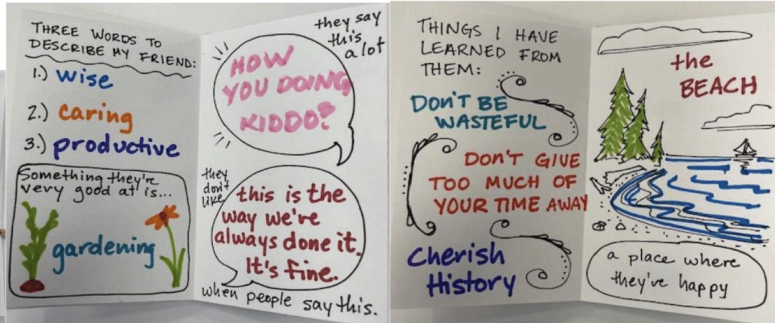 THREE WORDS TO
DESCRIBE MY FRIEND:
1.) wise
2.) caring
3.) productive
Something they're
very good at is...
gardening
they say
this
a lot
HOW
YOU DOING
KIDDO?
they
don't
like
this is the
way we've
always done it.
It's fine.
when people say this.
THINGS I HAVE
LEARNED FROM
THEM:
DON'T BE
WASTEFUL
DON'T GIVE
TOO MUCH OF
YOUR TIME AWAY
Cherish
History
the
BEACH
a place where
they're happy